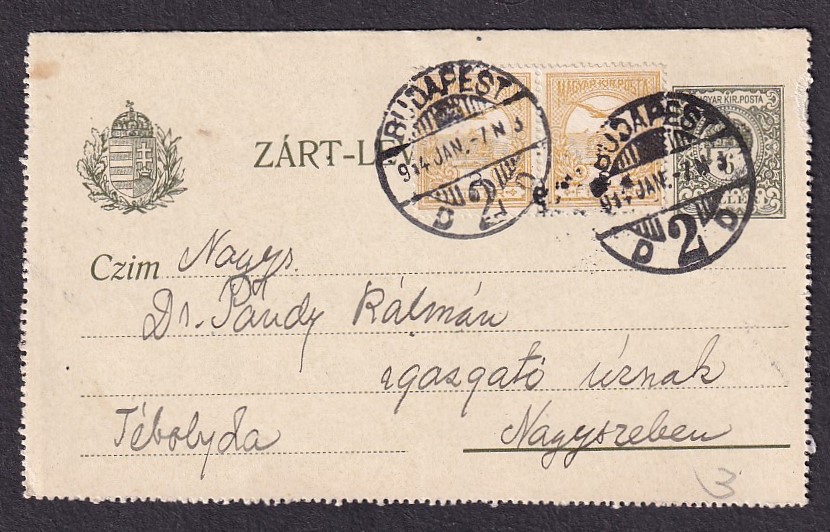 ZÁRT-LEV
MAGYAR·KIR·POSTA
MAGYAR KIR. POSTA
6
BUDAPEST
914 JAN.-7 N 3
D 2 D
BUDAPEST
914 JAN.-7 N 3
D 2 D
Czim Nagys.
Dr. Pándy Kálmán
igazgató úrnak
Tébolyda Nagyszeben
3